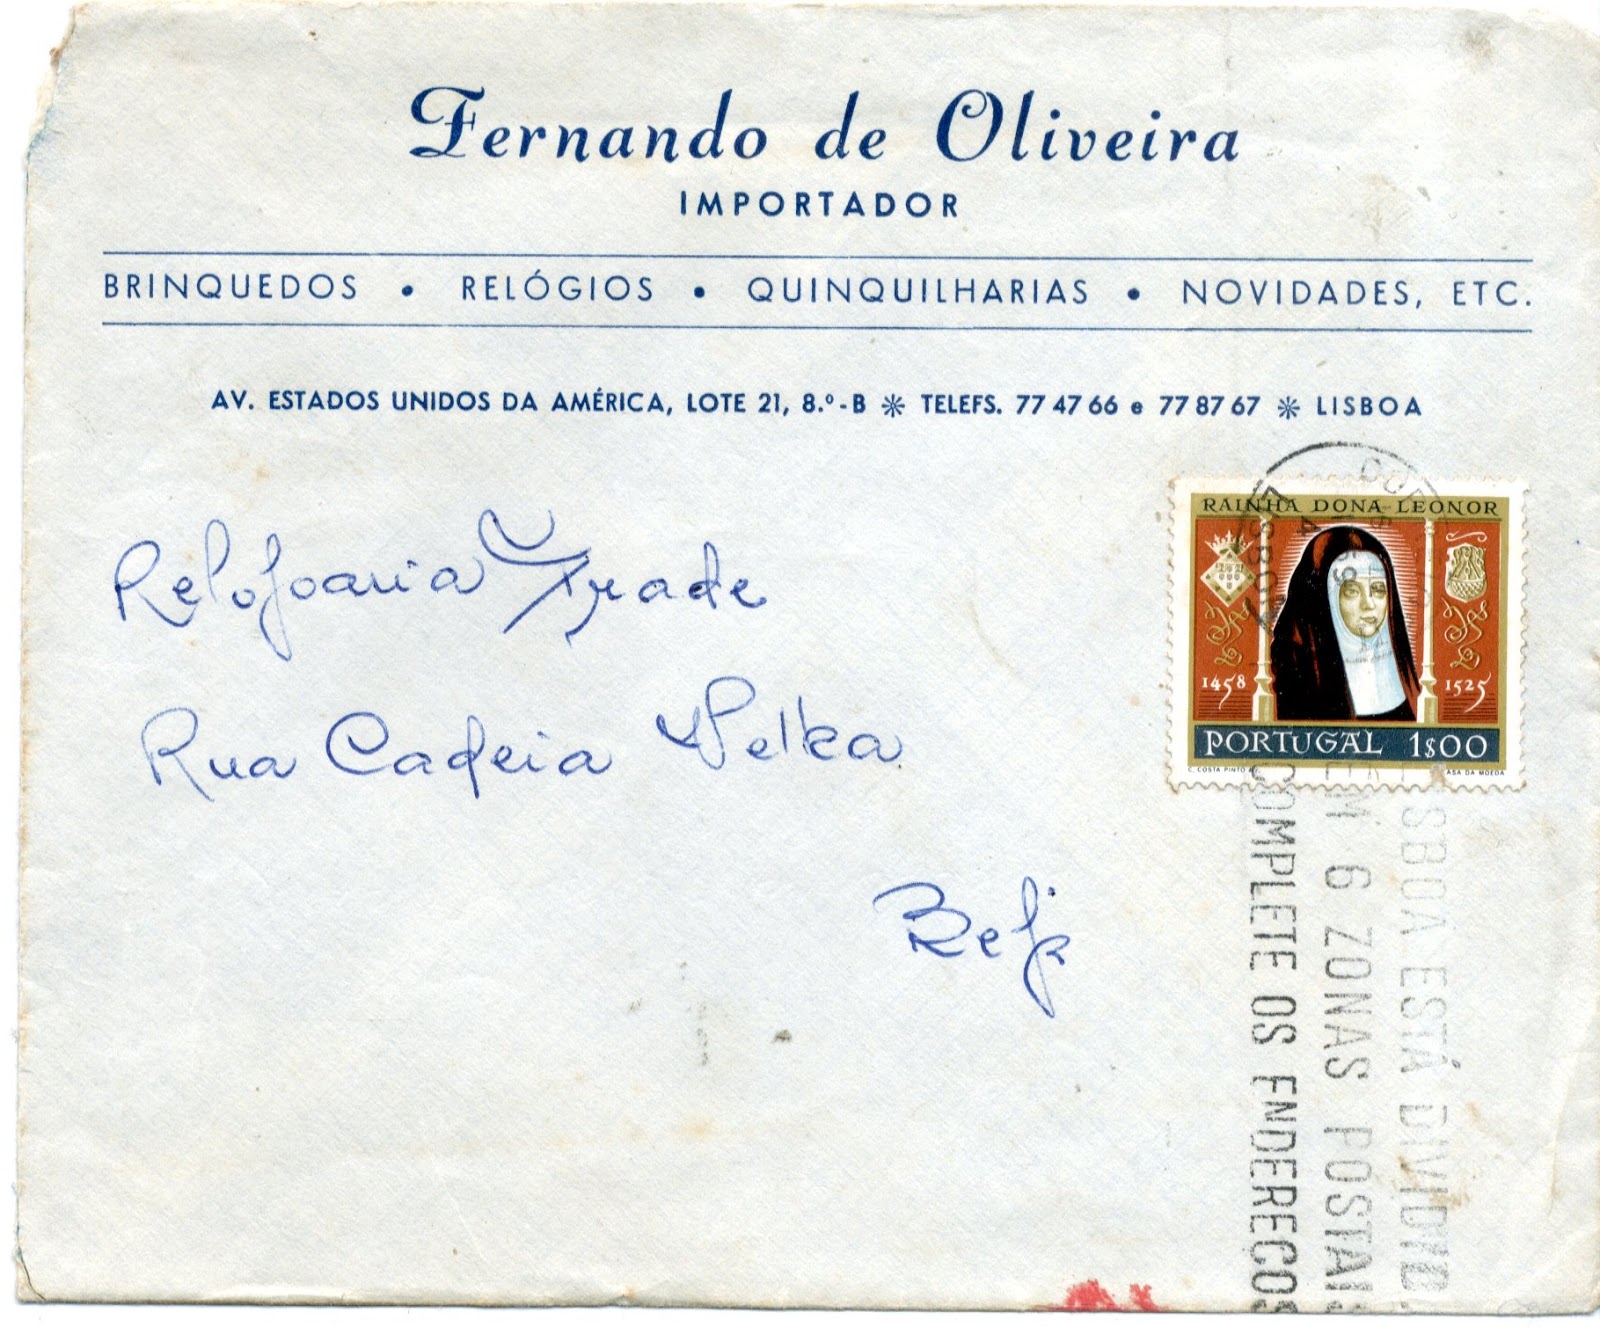 Fernando de Oliveira
IMPORTADOR
BRINQUEDOS • RELÓGIOS • QUINQUILHARIAS • NOVIDADES, ETC.
AV. ESTADOS UNIDOS DA AMÉRICA, LOTE 21, 8.º-B ✻ TELEFS. 77 47 66 e 77 87 67 ✻ LISBOA
Relojoaria Trade
Rua Cadeia Velha
Beja
RAINHA DONA LEONOR
1458 1525
PORTUGAL 1$00
C. COSTA PINTO ASA DA MOEDA
SBOA ESTÁ DIVIDID
EM 6 ZONAS POSTAIS
COMPLETE OS ENDEREÇOS